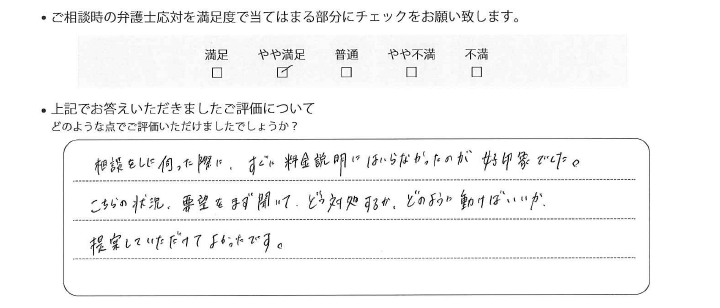 • ご相談時の弁護士応対を満足度で当てはまる部分にチェックをお願い致します。
満足 やや満足 普通 やや不満 不満
□ ☑ □ □ □
• 上記でお答えいただきましたご評価について
どのような点でご評価いただけましたでしょうか？
相談をしに伺った際に、すぐに料金説明にはいらなかったのが好印象でした。
こちらの状況、要望をまず聞いて、どう対処するか、どのように動けばいいか、
提案していただけてよかったです。